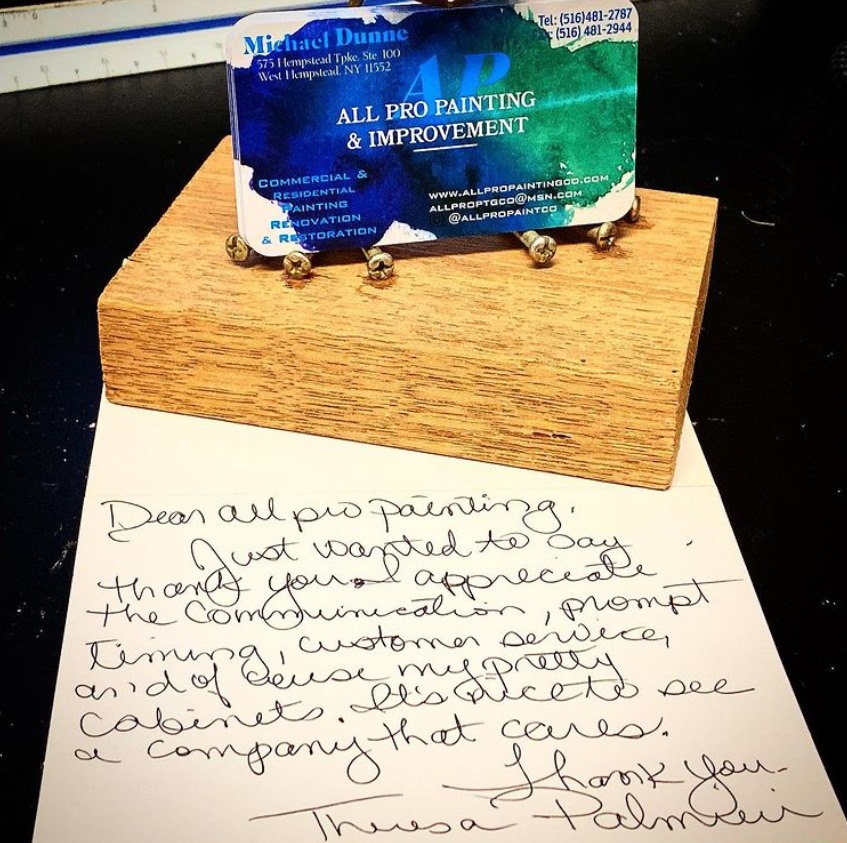 Michael Dunne
575 Hempstead Tpke. Ste. 100
West Hempstead, NY 11552
Tel: (516)481-2787
(516) 481-2944
AP
ALL PRO PAINTING
& IMPROVEMENT
COMMERCIAL &
RESIDENTIAL
PAINTING
RENOVATION
& RESTORATION
WWW.ALLPROPAINTINGCO.COM
ALLPROPTGCO@MSN.COM
@ALLPROPAINTCO
Dear all pro painting,
Just wanted to say
thank you. I appreciate
the communication, prompt
timing, customer service,
and of couse my pretty
cabinets. It's nice to see
a company that cares.
Thank you-
Theresa Palmieri